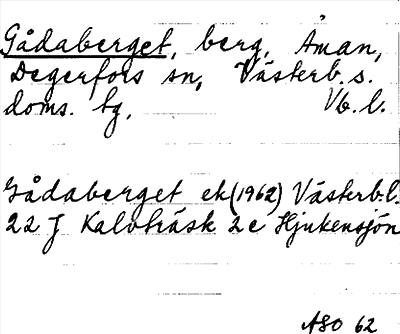 Gådaberget, berg, Åman,
Degerfors sn, Västerb. s.
doms. tg, Vb. l.
Gådaberget ek (1962) Västerb. l.
22 J Kalvträsk 2c Hjukensjön
ASO 62